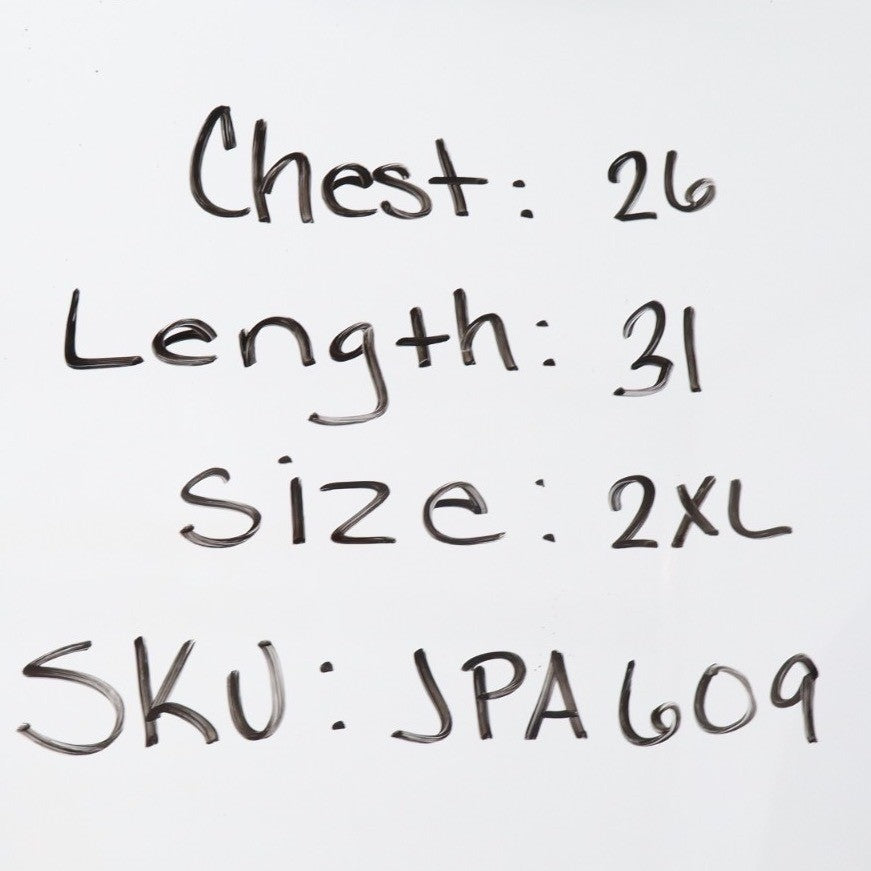 Chest: 26
Length: 31
Size: 2XL
SKU: JPA609